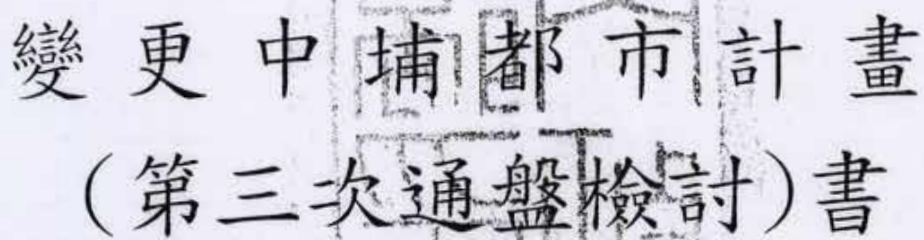 變更中埔都市計畫
(第三次通盤檢討)書